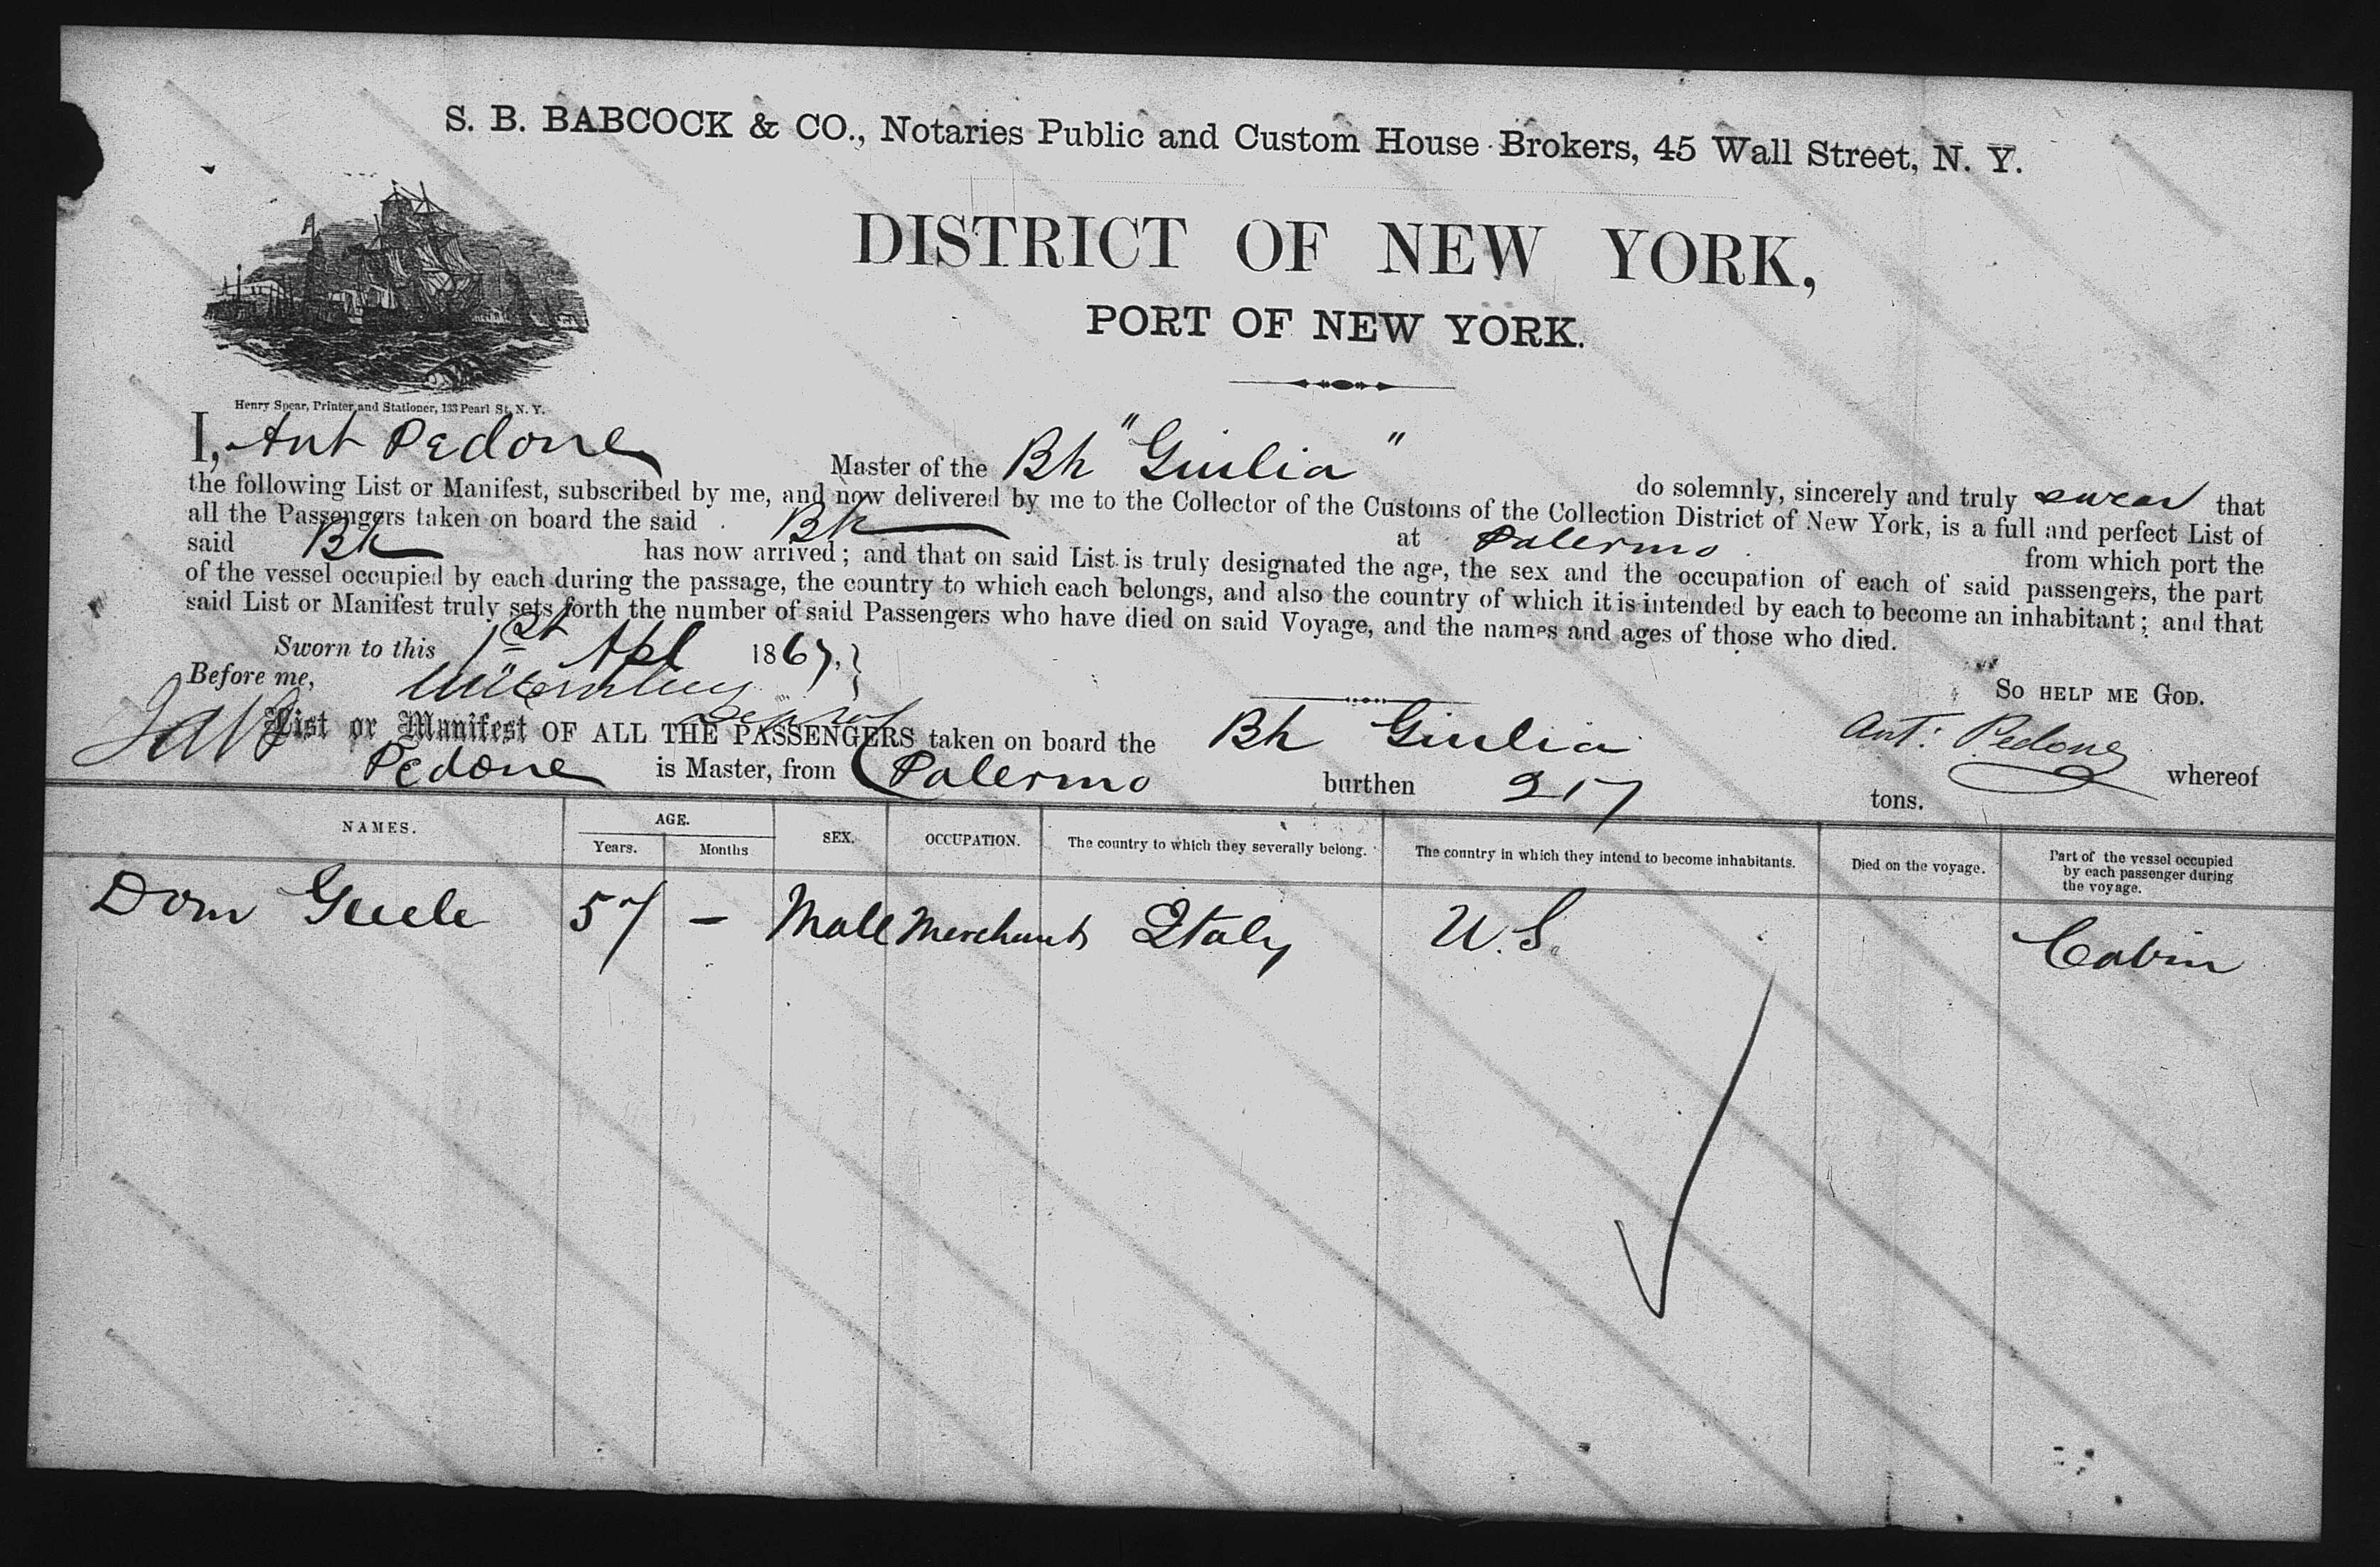 S. B. BABCOCK & CO., Notaries Public and Custom House Brokers, 45 Wall Street, N. Y.
DISTRICT OF NEW YORK,
PORT OF NEW YORK.
Henry Spear, Printer and Stationer, 133 Pearl St, N. Y.
I, Ant Pedone Master of the Bk "Giulia" do solemnly, sincerely and truly swear that
the following List or Manifest, subscribed by me, and now delivered by me to the Collector of the Customs of the Collection District of New York, is a full and perfect List of
all the Passengers taken on board the said Bk at Palermo from which port the
said Bk has now arrived; and that on said List is truly designated the age, the sex and the occupation of each of said passengers, the part
of the vessel occupied by each during the passage, the country to which each belongs, and also the country of which it is intended by each to become an inhabitant; and that
said List or Manifest truly sets forth the number of said Passengers who have died on said Voyage, and the names and ages of those who died.
Sworn to this 1st Apl 1867, SO HELP ME GOD.
Before me,
Ant: Pedone
List or Manifest OF ALL THE PASSENGERS taken on board the Bk Giulia whereof
Pedone is Master, from Palermo burthen 217 tons.
NAMES. AGE. Years. Months SEX. OCCUPATION. The country to which they severally belong. The country in which they intend to become inhabitants. Died on the voyage. Part of the vessel occupied by each passenger during the voyage.
Dom 57 – Male Merchant Italy U.S. Cabin